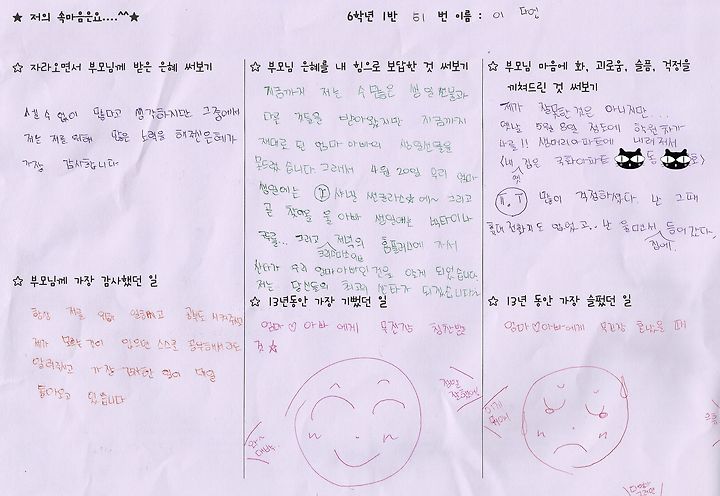 ★ 저의 속마음은요....^^★
6학년 1반 51 번 이름 : 이
☆ 자라오면서 부모님께 받은 은혜 써보기
셀 수 없이 많다고 생각하지만 그중에서
저는 저를 위해 많은 노력을 해주신은혜가
가장 감사합니다
☆ 부모님 은혜를 내 힘으로 보답한 것 써보기
지금까지 저는 수많은 생일선물과
다른 것들을 받아왔지만 지금까지
제대로 된 엄마 아빠의 생일선물을
못드렸습니다. 그래서 4월 20일 우리 엄마
생일에는 샤넬 썬글라스☆에~ 그리고
곧 찾아올 울 아빠 생일에는 넥타이나
그리고 저녁의 홈플러스에 가서
크리스마스이브
산타가 우리 엄마아빠인 것을 알게 되었습니다.
저는 당신들의 최고의 산타가 되겠습니다~
☆ 부모님 마음에 화, 괴로움, 슬픔, 걱정을
끼쳐드린 것 써보기
제가 잘못한것은 아니지만...
옛날 5월 8일 정도에 학원 차가
나를!! 한아파트에 내려줘서
<내 집은 국화아파트 동 호>
옛
많이 걱정하셨다. 난 그때
휴대전화기도 없었고.. 난 울면서 들어갔다.
집에
☆ 부모님께 가장 감사했던 일
항상 저를 위해 일하시고
제가 모르는 것이 있으면 스스로 공부해서라도
알려주시고 가장 감사한 일이 매일
돌아오고 있습니다
☆ 13년동안 가장 기뻤던 일
엄마♡아빠 에게 무진장 칭찬받은
것☆
정말 잘했어!
와~
대박
☆ 13년 동안 가장 슬펐던 일
엄마♡아빠에게 무진장 혼났을 때
이게
뭐야